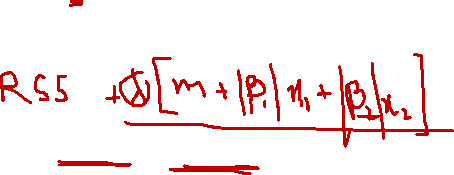 RSS + λ[m + |β₁|x₁ + |β₂|x₂]